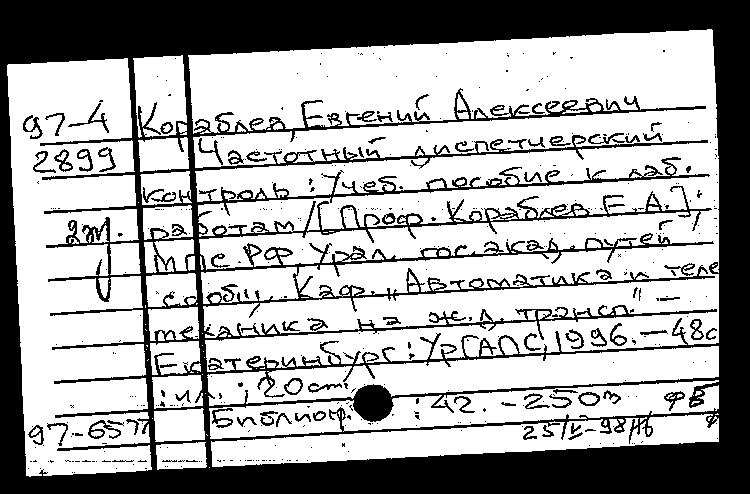 97-4 Кораблев, Евгений Алексеевич
2899 Частотный диспетчерский
контроль : Учеб. пособие к лаб.
2эк. работам / [Проф. Кораблев Е.А.];
МПС РФ, Урал. гос. акад. путей
сообщ. Каф. „Автоматика и теле
механика на ж.д. трансп." –
Екатеринбург : УрГАПС, 1996. – 48с
: ил. ; 20 см.
97-657 Библиогр. : 42. – 250э
25/V-98